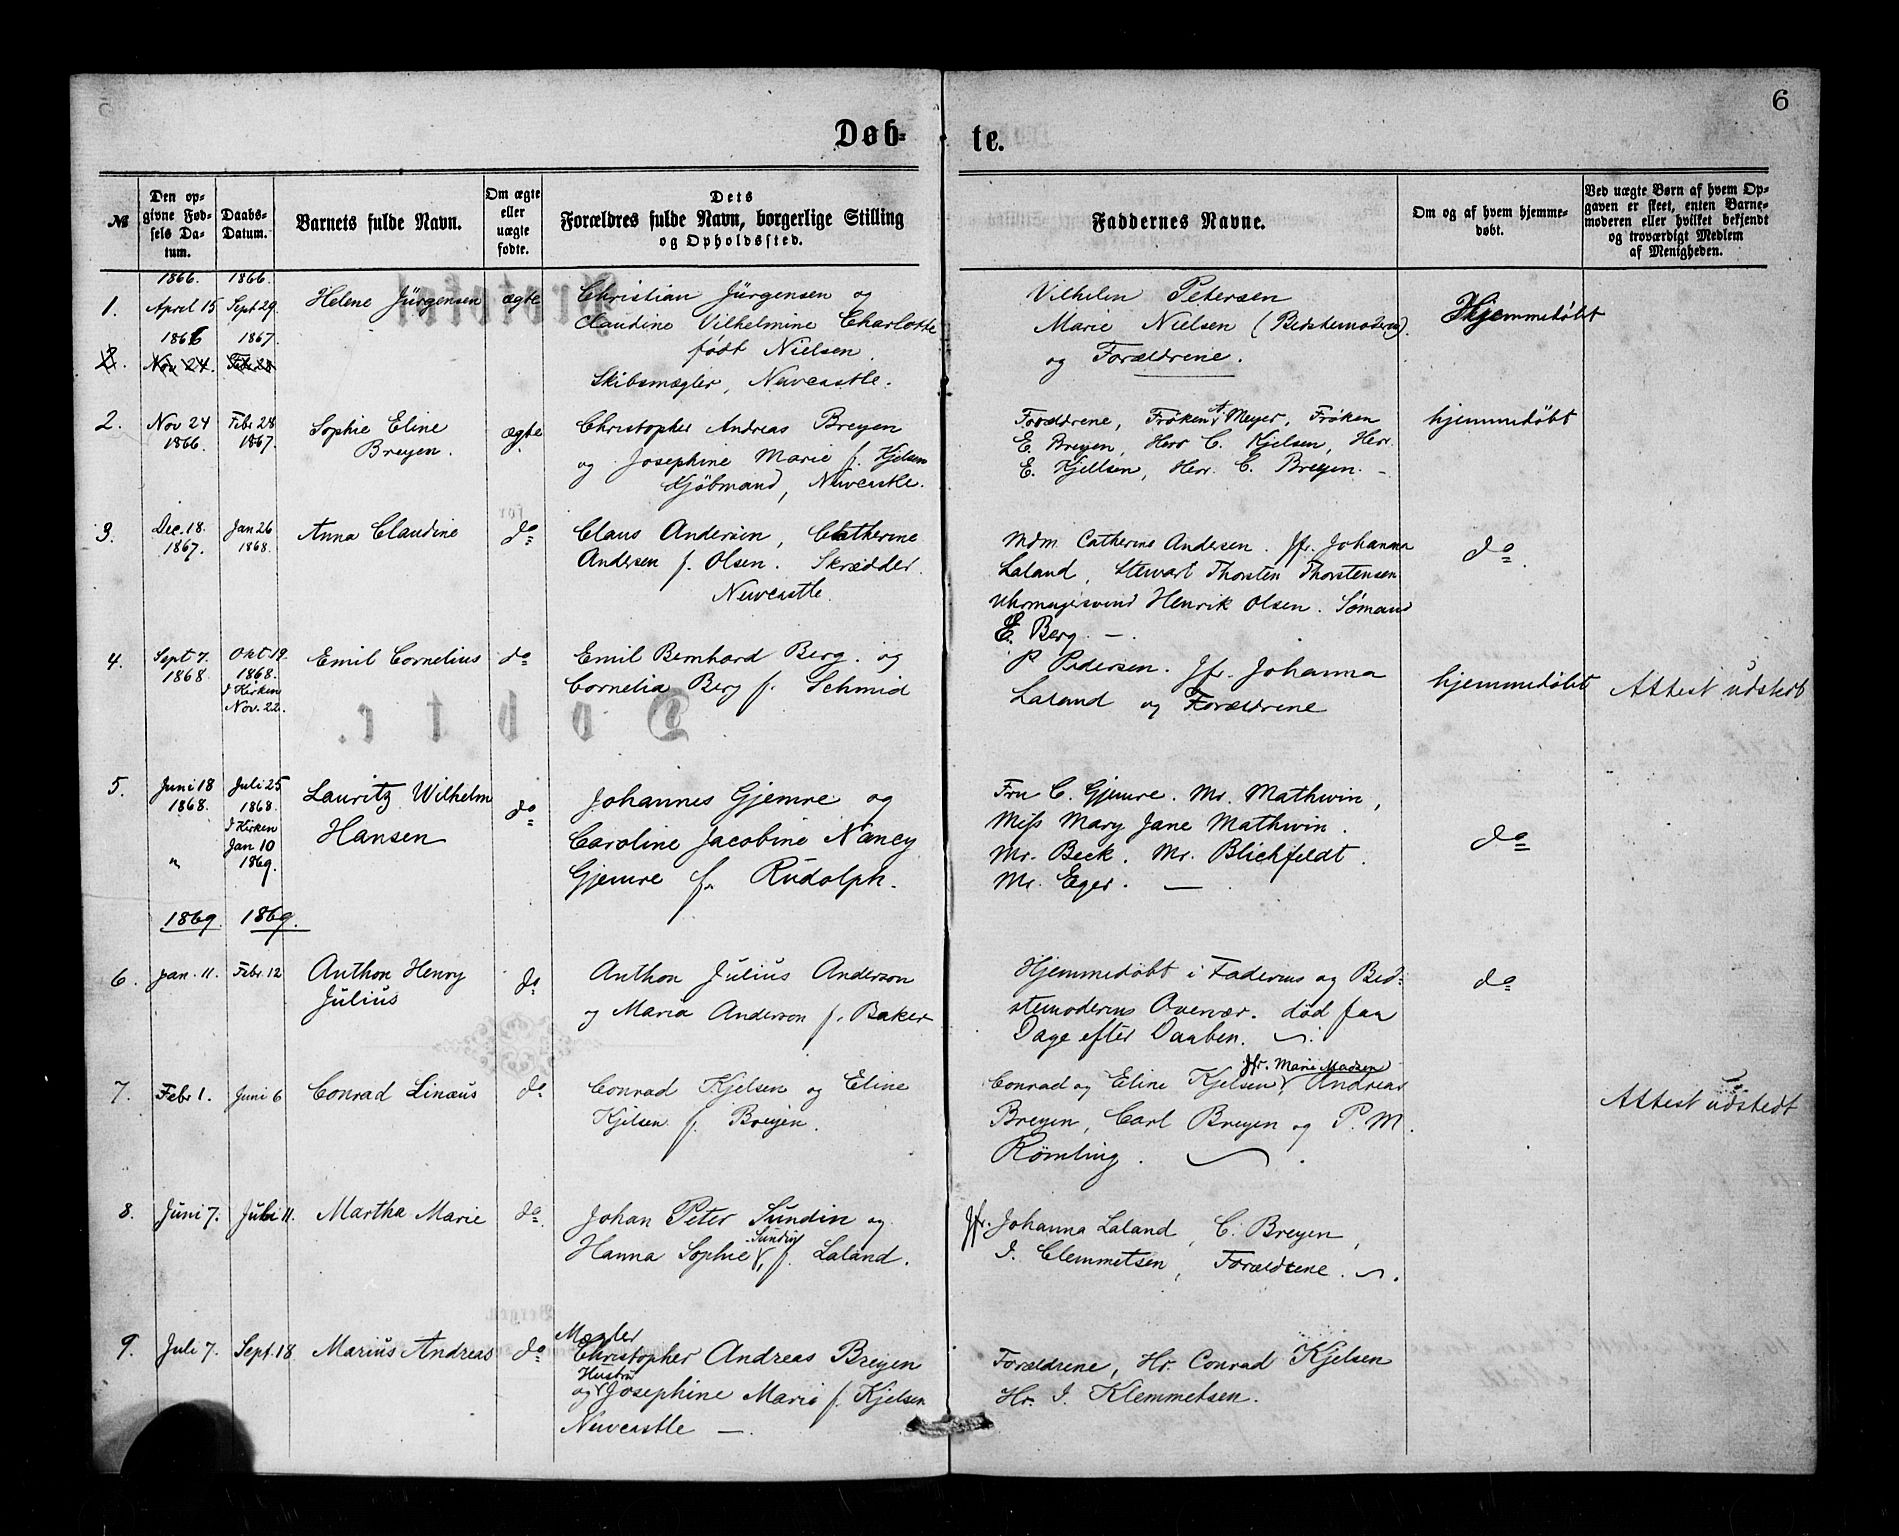 6
Døb-te.
№
Den op-
givne Fød-
sels Da-
tum.
Daabs-
Datum.
Barnets fulde Navn.
Om ægte
eller
uægte
fødte.
Dets
Forældres fulde Navn, borgerlige Stilling
og Opholdssted.
Faddernes Navne.
Om og af hvem hjemme-
døbt.
Ved uægte Børn af hvem Op-
gaven er skeet, enten Barne-
moderen eller hvilket bekjendt
og troværdigt Medlem
af Menigheden.
1.
1866.
April 15
1866.
Sept 29.
Helene Jürgensen
ægte
Christian Jürgensen og
Claudine Vilhelmine Charlotte
født Nielsen.
Skibsmægler, Newcastle.
Vilhelm Petersen
Marie Nielsen (Bedstemoderen).
og Forældrene.
Hjemmedøbt
2.
1866
Nov 24.
1867.
Feb 28
2.
Nov 24
1866.
Febr 28
1867.
Sophie Eline
Breyen.
ægte
Christopher Andreas Breyen
og Josephine Marie f. Kjelsen
Kjöbmand, Newcastle.
Forældrene, Frøken A. Meyer, Frøken
E. Breyen, Herr C. Kjelsen, Herr.
E. Kjellsen, Herr. C. Breyen. -
hjemmedøbt
3.
Dec. 18.
1867.
Jan 26
1868.
Anna Claudine
do
Claus Andersen, Catherine
Andersen f. Olsen. Skrædder.
Newcastle.
Mdm. Catherine Andersen. Jfr. Johanna
Laland, Stewart Thorsten Thorstensen
Uhrmagersvend Henrik Olsen. Sømand
E. Berg. —
do
4.
Sept 7.
1868
Okt 19.
1868.
I Kirken
Nov. 22.
Emil Cornelius
do
Emil Bernhard Berg. og
Cornelia Berg f. Schmid
P Pedersen. Jfr. Johanna
Laland og Forældrene
hjemmedøbt
Attest udstedt
5.
Juni 18
1868.
"
Juli 25
1868.
I Kirken
Jan 10
1869.
Lauritz Wilhelm
Hansen
do
Johannes Gjemre og
Caroline Jacobine Nancy
Gjemre f. Rudolph.
Fru C. Gjemre. Mr. Mathwin,
Miss Mary Jane Mathwin.
Mr. Beck. Mr. Blichfeldt.
Mr. Eger. —
do
1869. 1869.
6.
Jan. 11.
Febr. 12
Anthon Henry
Julius
do
Anthon Julius Anderson
og Maria Anderson f. Baker
Hjemmedøbt i Faderens og Bed-
stemoderens Overvær. død faa
Dage efter Daaben.
do
7.
Febr 1.
Juni 6
Conrad Linæus
do
Conrad Kjelsen og Eline
Kjelsen f. Breyen.
Jfr. Marie Madsen
Conrad og Eline Kjelsen, Andreas
Breyen, Carl Breyen og P. M.
Rømling.
Attest udstedt
8.
Juni 7.
Juli 11.
Martha Marie
do
Johan Peter Sundin og
Hanna Sophie Sundin, f. Laland.
Jfr. Johanna Laland, C. Breyen,
I. Clemmetsen, Forældrene.
9.
Juli 7.
Sept. 18
Marius Andreas
do
Mægler
Christopher Andreas Breyen
og Hustru Josephine Marie f. Kjelsen
Newcastle —
Forældrene, Hr. Conrad Kjelsen
Hr. I. Klemmetsen.